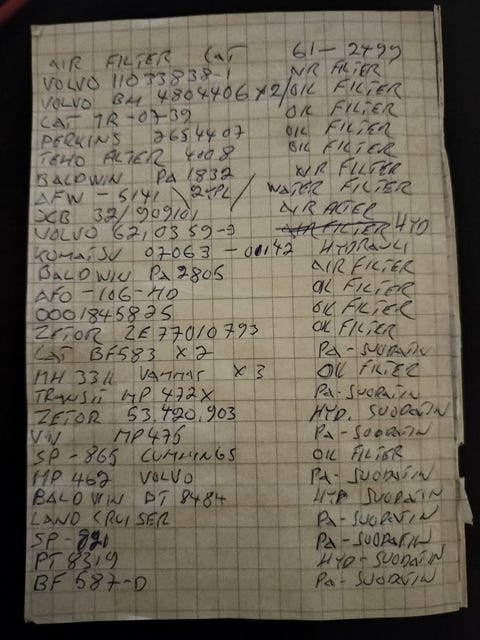 AIR FILTER CAT 61-2499
VOLVO 11033838-1 AIR FILTER
VOLVO BM 4804406 x2/ OIL FILTER
CAT 1R-0739 OIL FILTER
PERKINS 2654407 OIL FILTER
TEHO FILTER 4008 OIL FILTER
BALDWIN PA 1832 AIR FILTER
AFW-5141 \ 2KPL / WATER FILTER
JCB 32/909101 AIR FILTER
VOLVO 6210359-3 HYD
KOMATSU 07063-00142 HYDRAULI
BALDWIN PA2805 AIR FILTER
AFO-106-HD OIL FILTER
0001845825 OIL FILTER
ZETOR ZE77010793 OIL FILTER
CAT BF583 x2 PA-SUODATIN
MH 3311 YANMAR x3 OIL FILTER
TRANSIT MP 472X PA-SUODATIN
ZETOR 53,420,903 HYD. SUODATIN
VW MP475 PA-SUODATIN
SP-865 CUMMINGS OIL FILTER
MP 462 VOLVO PA-SUODATIN
BALDWIN PT 8484 HYD SUODATIN
LAND CRUISER PA-SUODATIN
SP-821 PA-SUODATIN
PT8319 HYD-SUODATIN
BF 587-D PA-SUODATIN